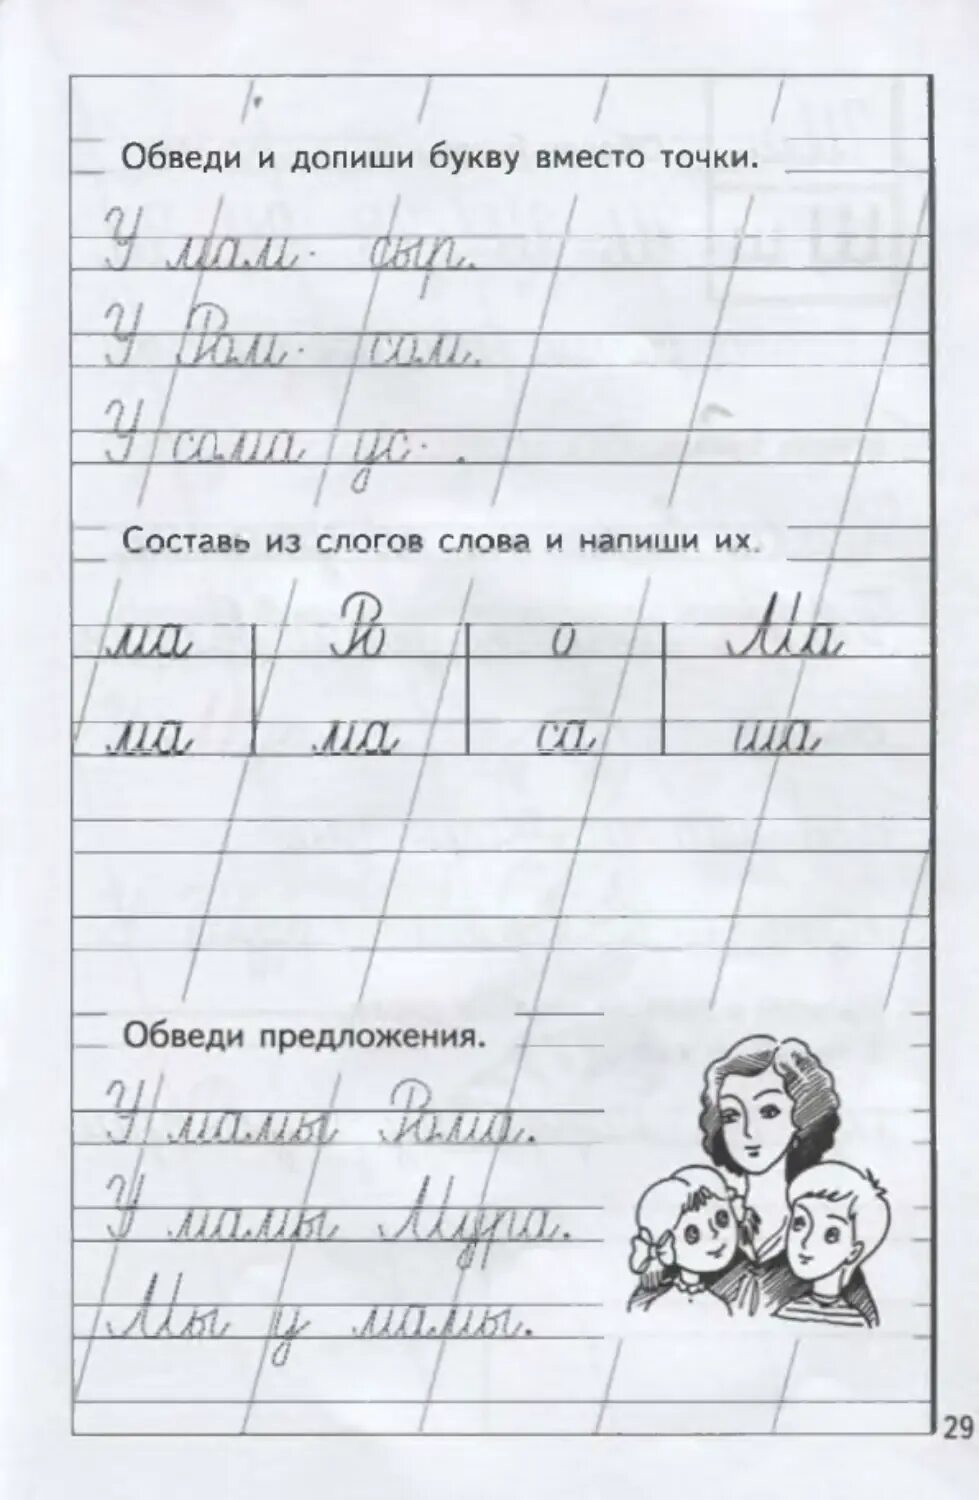 Обведи и допиши букву вместо точки.
У мам. сыр.
У Ром. сом.
У сома ус. .
Составь из слогов слова и напиши их.
ма Ро о Ма
ма ма са ша
Обведи предложения.
У мамы Рома.
У мамы Мура.
Мы у мамы.
29